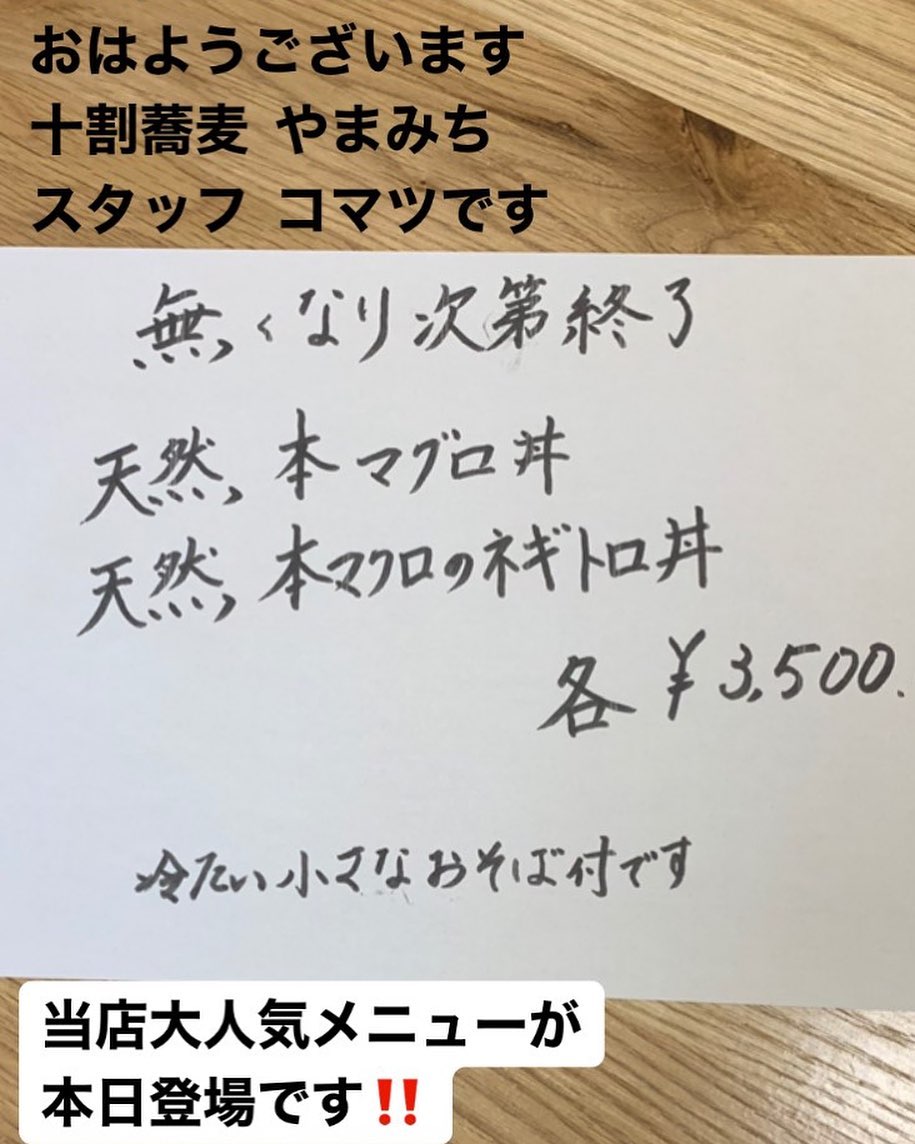 おはようございます
十割蕎麦 やまみち
スタッフ コマツです
無くなり次第終了
天然本マグロ丼
天然本マクロのネギトロ丼
各¥3,500.
冷たい小さなおそば付です
当店大人気メニューが
本日登場です‼️